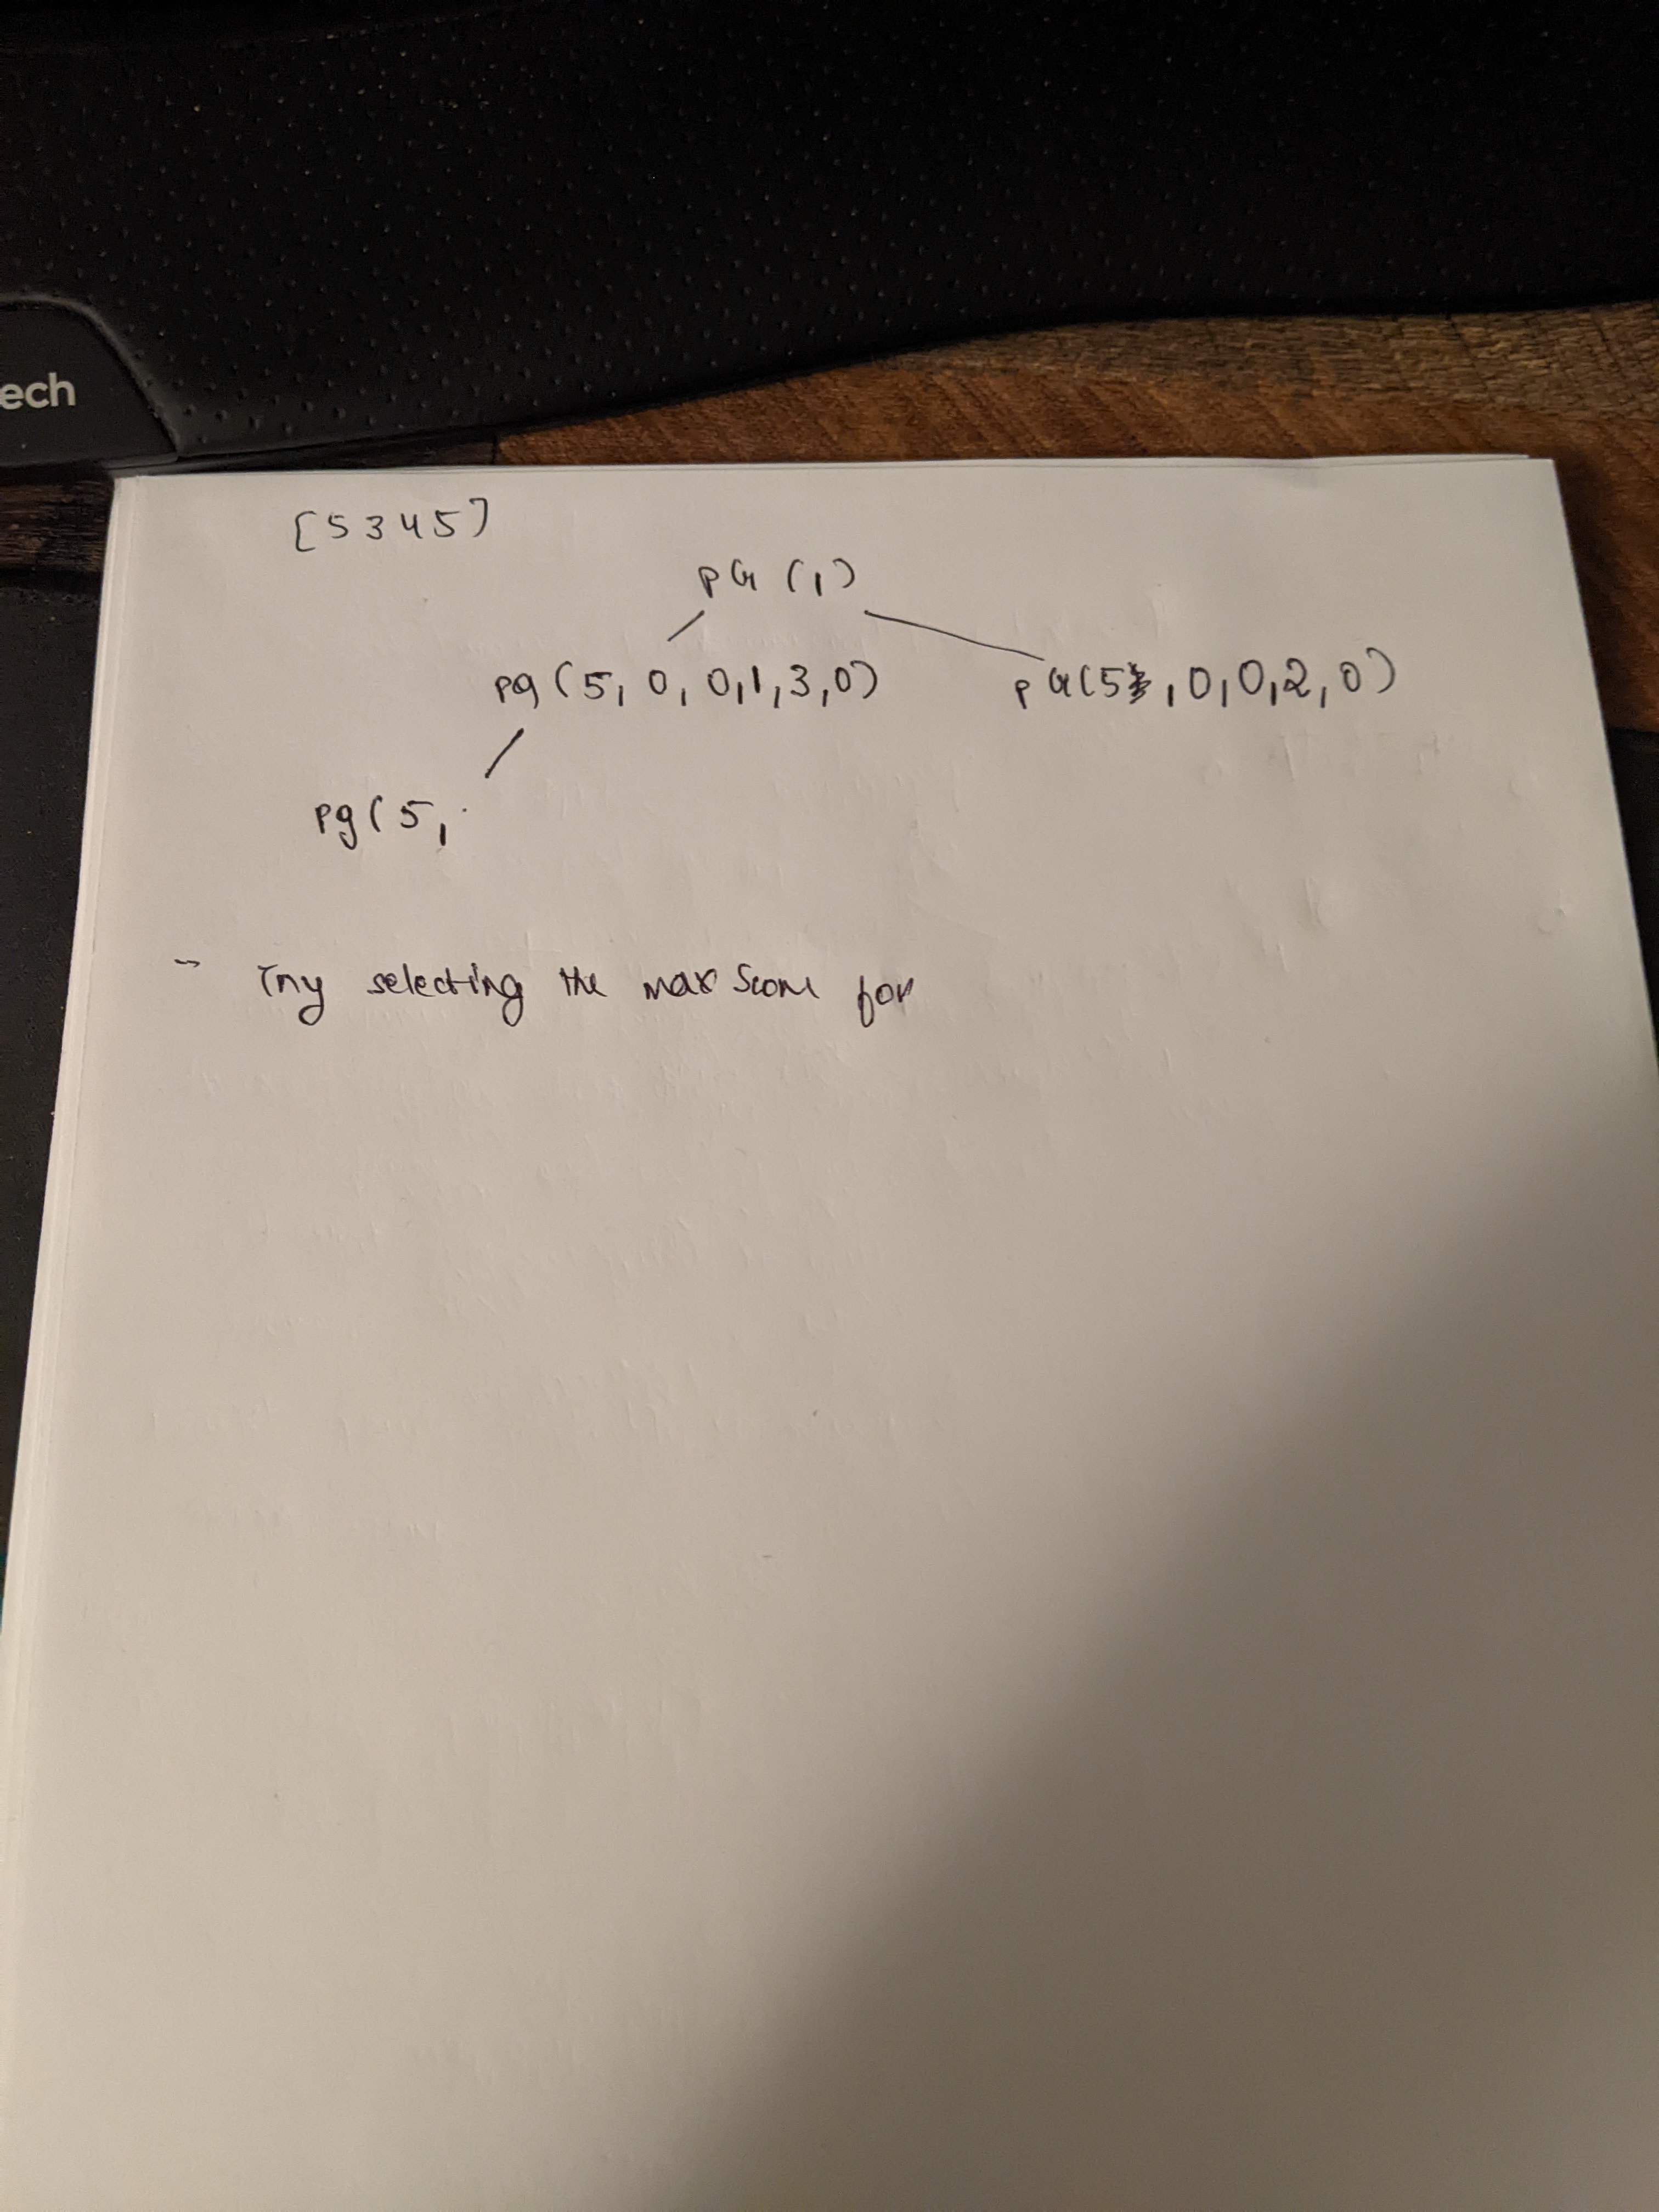 ech
[5 3 4 5]
pG (1)
pg (5, 0, 0, 1, 3, 0)
pG(5, 0, 0, 2, 0)
pg( 5,
Try selecting the max Score for